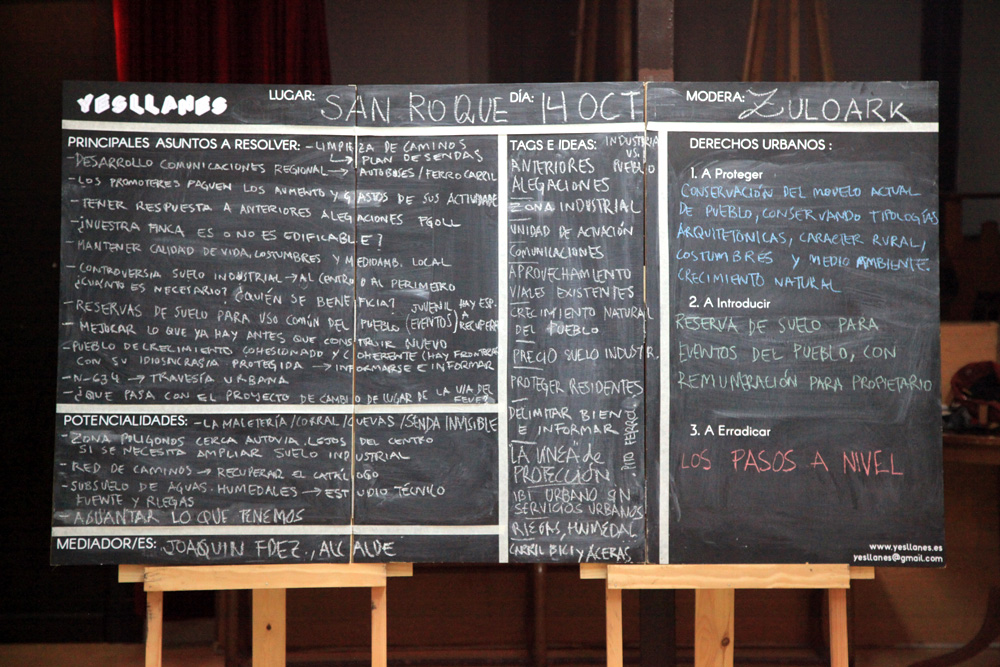 YESLLANES LUGAR: SAN ROQUE DÍA: 14 OCT MODERA: ZULOARK
PRINCIPALES ASUNTOS A RESOLVER: - LIMPIEZA DE CAMINOS
PLAN DE SENDAS
- DESARROLLO COMUNICACIONES REGIONAL → AUTOBUSES / FERROCARRIL
- LOS PROMOTERES PAGUEN LOS AUMENTO Y GASTOS DE SUS ACTIVIDADES
- TENER RESPUESTA A ANTERIORES ALEGACIONES PGOU
- ¿NUESTRA FINCA, ES O NO ES EDIFICABLE?
- MANTENER CALIDAD DE VIDA, COSTUMBRES Y MEDIOAMB. LOCAL
- CONTROVERSIA SUELO INDUSTRIAL → AL CENTRO O AL PERIMETRO
¿CUÁNTO ES NECESARIO? ¿QUIÉN SE BENEFICIA?
- RESERVAS DE SUELO PARA USO COMÚN DEL PUEBLO (EVENTOS) JUVENIL HAY ESP. A RECUPERAR
- MEJORAR LO QUE YA HAY ANTES QUE CONSTRUIR NUEVO
- PUEBLO DE CRECIMIENTO COHESIONADO Y COHERENTE (HAY FRONTERAS
CON SU IDIOSINCRASIA PROTEGIDA → INFORMARSE E INFORMAR
- N-634 → TRAVESÍA URBANA
- ¿QUE PASA CON EL PROYECTO DE CAMBIO DE LUGAR DE LA VIA DEL FEVE?
POTENCIALIDADES: - LA MALETERÍA / CORRAL / CUEVAS / SENDA INVISIBLE
- ZONA POLÍGONOS CERCA AUTOVIA, LEJOS DEL CENTRO
SI SE NECESITA AMPLIAR SUELO INDUSTRIAL
- RED DE CAMINOS → RECUPERAR EL CATÁLOGO
- SUBSUELO DE AGUAS - HUMEDALES → ESTUDIO TÉCNICO
FUENTE Y RIEGAS
- AGUANTAR LO QUE TENEMOS
MEDIADOR/ES: JOAQUIN FDEZ., ALCALDE
TAGS E IDEAS: INDUSTRIA
VS.
PUEBLO
ANTERIORES
ALEGACIONES
ZONA INDUSTRIAL
UNIDAD DE ACTUACIÓN
COMUNICACIONES
APROVECHAMIENTO
VIALES EXISTENTES
CRECIMIENTO NATURAL
DEL PUEBLO
PRECIO SUELO INDUSTR.
PROTEGER RESIDENTES
DELIMITAR BIEN
E INFORMAR
PITO FERROL
LA LÍNEA de
PROTECCIÓN
IBI URBANO SIN
SERVICIOS URBANOS
RIEGAS, HUMEDAL
CARRIL BICI y ACERAS
DERECHOS URBANOS :
1. A Proteger
CONSERVACIÓN DEL MODELO ACTUAL
DE PUEBLO, CONSERVANDO TIPOLOGÍAS
ARQUITETÓNICAS, CARACTER RURAL,
COSTUMBRES Y MEDIO AMBIENTE.
CRECIMIENTO NATURAL
2. A Introducir
RESERVA DE SUELO PARA
EVENTOS DEL PUEBLO, CON
REMUNERACIÓN PARA PROPIETARIO
3. A Erradicar
LOS PASOS A NIVEL
www.yesllanes.es
yesllanes@gmail.com